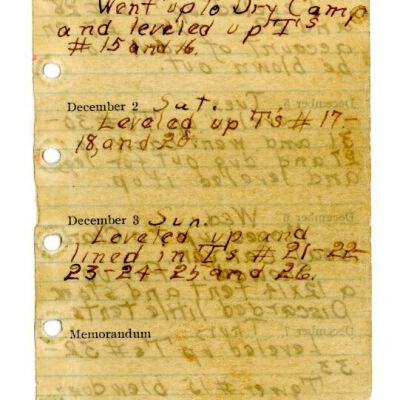 Went up to Dry Camp
and leveled up T's
# 15 and 16.
December 2 Sat.
Leveled up T's # 17-
18, and 20.
December 3 Sun.
Leveled up and
lined in T's # 21-22
23-24-25 and 26.
Memorandum